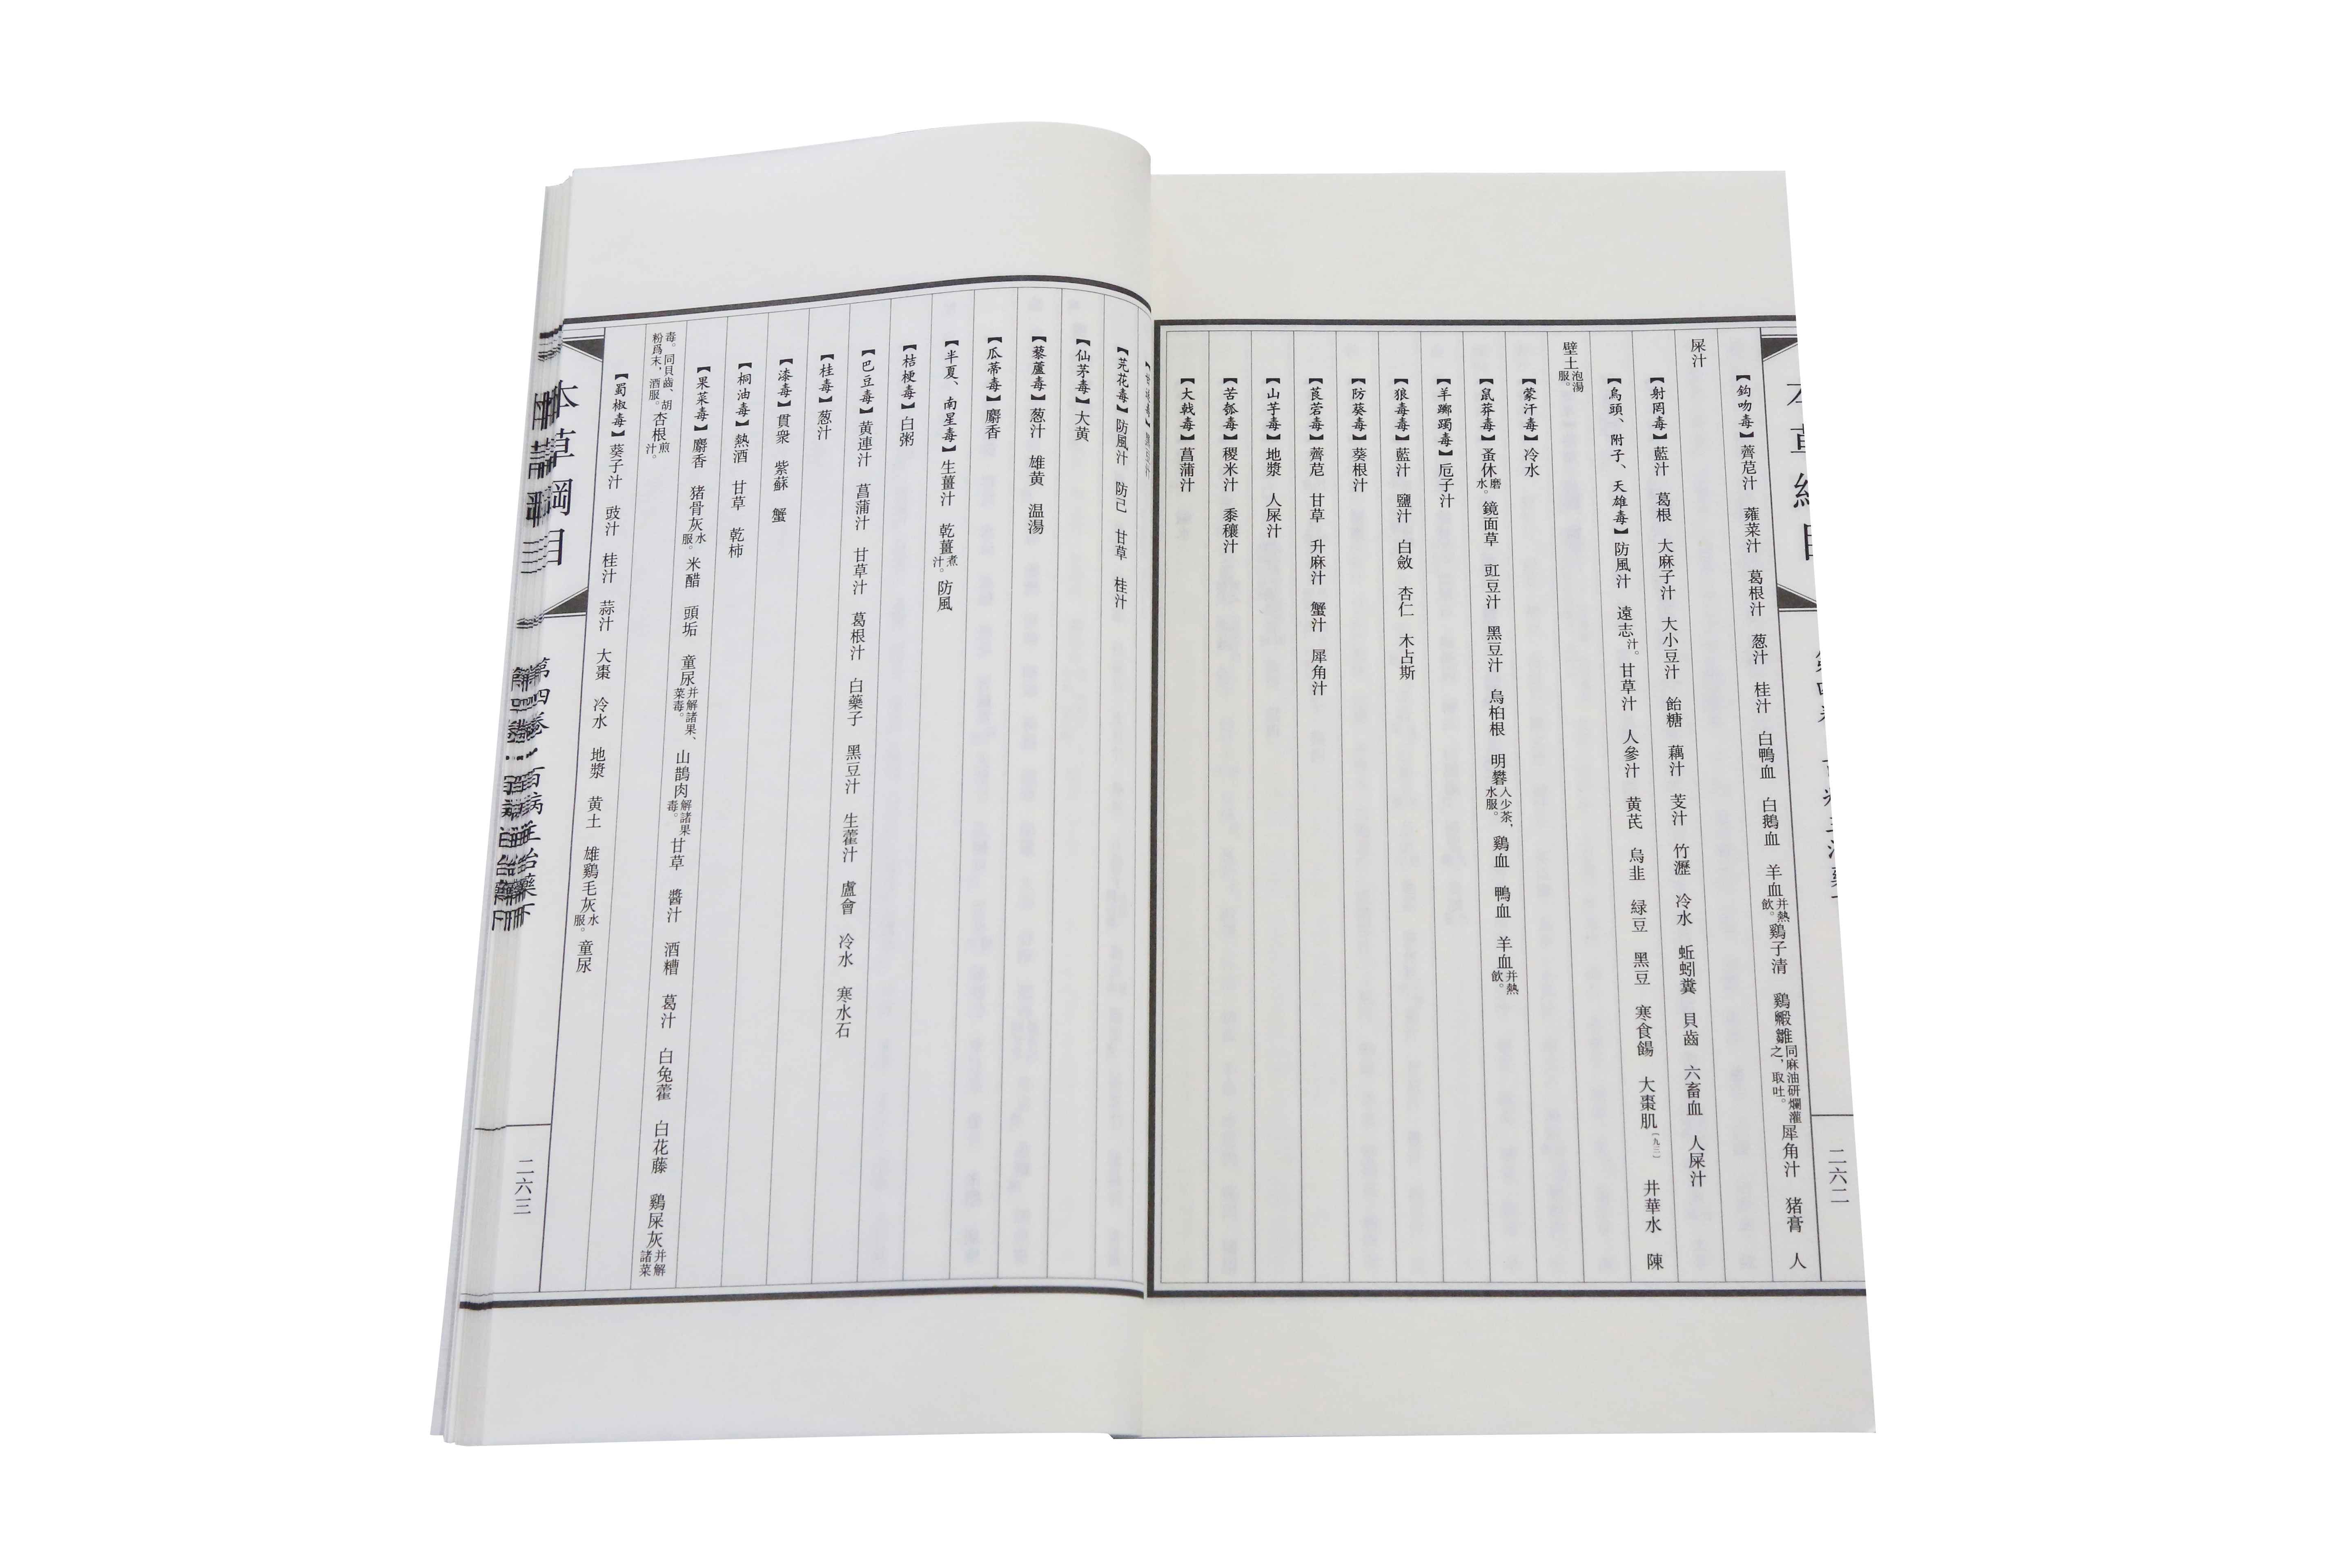 【鈎吻毒】薺苨汁　蕹菜汁　葛根汁　葱汁　桂汁　白鴨血　白鵝血　羊血并熱飲。鷄子清　鷄毈雛同麻油研爛灌之，取吐。犀角汁　猪膏　人
屎汁
【射罔毒】藍汁　葛根　大麻子汁　大小豆汁　飴糖　藕汁　芰汁　竹瀝　冷水　蚯蚓糞　貝齒　六畜血　人屎汁
【烏頭、附子、天雄毒】防風汁　遠志汁。甘草汁　人參汁　黄芪　烏韭　緑豆　黑豆　寒食餳　大棗肌〔九三〕　井華水　陳
壁土泡湯服。
【蒙汗毒】冷水
【鼠莽毒】蚤休磨水。鏡面草　豇豆汁　黑豆汁　烏桕根　明礬入少茶，水服。鷄血　鴨血　羊血并熱飲。
【羊躑躅毒】卮子汁
【狼毒毒】藍汁　鹽汁　白斂　杏仁　木占斯
【防葵毒】葵根汁
【莨菪毒】薺苨　甘草　升麻汁　蟹汁　犀角汁
【山芋毒】地漿　人屎汁
【苦瓠毒】稷米汁　黍穰汁
【大戟毒】菖蒲汁
二六二
【芫花毒】防風汁　防己　甘草　桂汁
【仙茅毒】大黄
【藜蘆毒】葱汁　雄黄　温湯
【瓜蒂毒】麝香
【半夏、南星毒】生薑汁　乾薑煮汁。防風
【桔梗毒】白粥
【巴豆毒】黄連汁　菖蒲汁　甘草汁　葛根汁　白藥子　黑豆汁　生藿汁　盧會　冷水　寒水石
【桂毒】葱汁
【漆毒】貫衆　紫蘇　蟹
【桐油毒】熱酒　甘草　乾柿
【果菜毒】麝香　猪骨灰水服。米醋　頭垢　童尿并解諸果、菜毒。山鵲肉解諸果毒。甘草　醬汁　酒糟　葛汁　白兔藿　白花藤　鷄屎灰并解諸菜
毒。同貝齒、胡粉爲末，酒服。杏根煎汁。
【蜀椒毒】葵子汁　豉汁　桂汁　蒜汁　大棗　冷水　地漿　黄土　雄鷄毛灰水服。童尿
本草綱目
第四卷　百病主治藥下
二六三